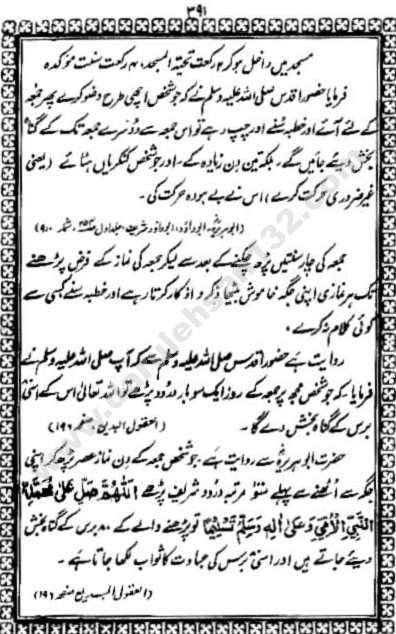 ۳۹۱
مسجد میں داخل ہو کر ۲ رکعت تحیۃ المسجد، ۴ رکعت سنت مؤکدہ
فرمایا حضور اقدس صلی اللہ علیہ وسلم نے کہ جو شخص اچھی طرح وضو کرے پھر جمعہ
کے لئے آئے اور خطبہ سنے اور چپ رہے تو اس جمعہ سے دوسرے جمعہ تک کے گناہ
بخش دیئے جائیں گے، بلکہ تین دن زیادہ کے۔ اور جو شخص کنکریاں ہٹائے (یعنی
غیر ضروری حرکت کرے) اس نے بے ہودہ حرکت کی۔
(ابو ہریرہؓ۔ ابوداؤد، ابوداؤد شریف جلد اول شمار ۹۱۰)
جمعہ کی چار سنتیں پڑھ چکنے کے بعد سے لیکر جمعہ کی نماز کے فرض پڑھنے
تک ہر نمازی اپنی جگہ خاموش بیٹھا ذکر و اذکار کرتا رہے اور خطبہ سنے کسی سے
کوئی کلام نہ کرے۔
روایت ہے حضور اقدس صلی اللہ علیہ وسلم سے کہ آپ صلی اللہ علیہ وسلم نے
فرمایا۔ کہ جو شخص مجھ پر جمعہ کے روز ایک سو بار درود پڑھے تو اللہ تعالیٰ اس کے اسّی
برس کے گناہ بخش دے گا۔ (القول البدیع صفحہ ۱۹۶)
حضرت ابو ہریرہؓ سے روایت ہے۔ جو شخص جمعہ کے دن نماز عصر پڑھ کر اپنی
جگہ سے اٹھنے سے پہلے مرتبہ درود شریف پڑھے اَللّٰهُمَّ صَلِّ عَلٰی مُحَمَّدِنِ
النَّبِيِّ الْاُمِّيِّ وَعَلٰی اٰلِهٖ وَسَلِّمْ تَسْلِيْمًا تو پڑھنے والے کے ۸۰ برس کے گناہ بخش
دیئے جاتے ہیں اور اسّی برس کی عبادت کا ثواب لکھا جاتا ہے۔
(القول البدیع صفحہ ۱۹۶)